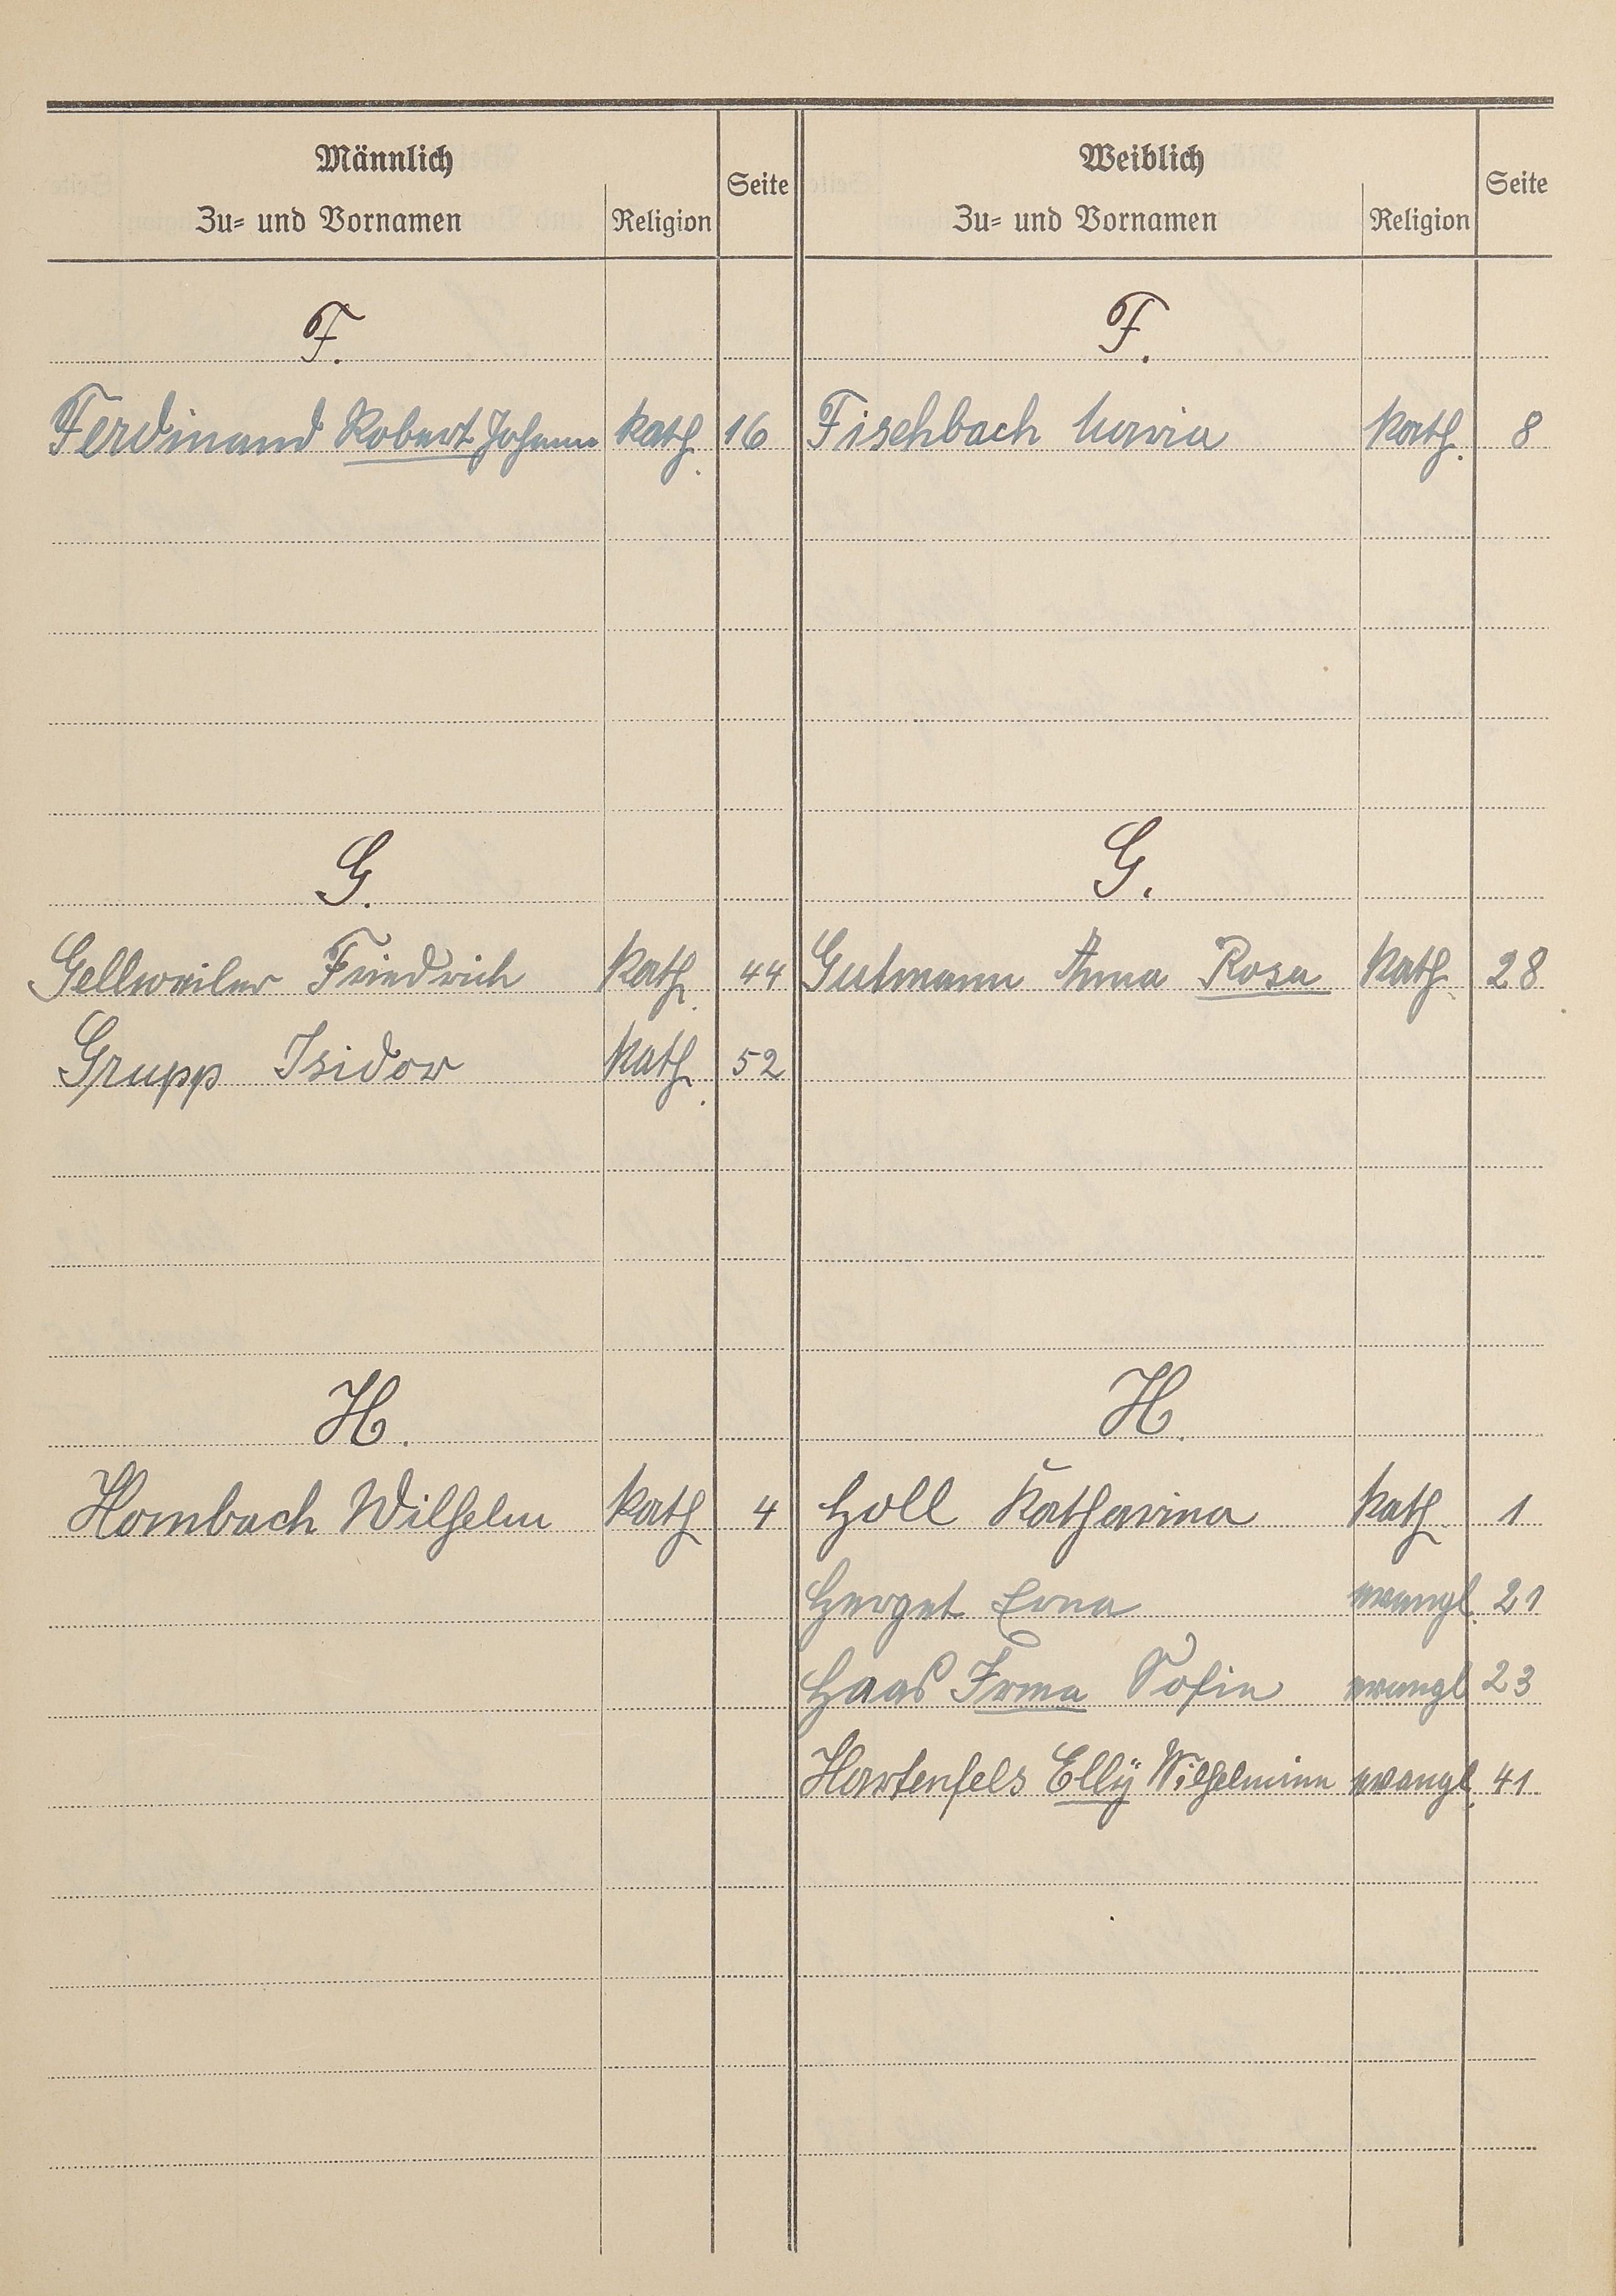 Männlich Seite Weiblich Seite
Zu= und Vornamen Religion Zu= und Vornamen Religion
F. F.
Ferdinand Robert Johann kath. 16 Fischbach Maria kath. 8
G. G.
Gellweiler Friedrich kath. 44 Gutmann Anna Rosa kath. 28
Grupp Isidor kath. 52
H. H.
Hombach Wilhelm kath 4 Holl Katharina kath. 1
Herget Erna evangl. 21
Haas Irma Sofie evangl 23
Hartenfels Elly Wilhelmine evangl. 41